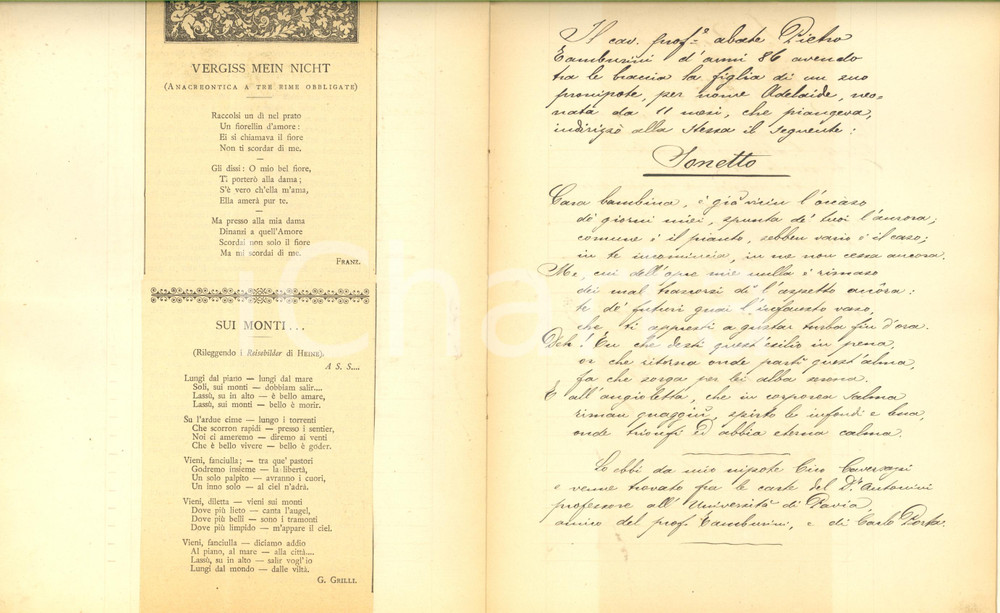 VERGISS MEIN NICHT
(ANACREONTICA A TRE RIME OBBLIGATE)
Raccolsi un dì nel prato
Un fiorellin d'amore:
Ei si chiamava il fiore
Non ti scordar di me.
Gli dissi: O mio bel fiore,
Ti porterò alla dama;
S'è vero ch'ella m'ama,
Ella amerà pur te.
Ma presso alla mia dama
Dinanzi a quell'Amore
Scordai non solo il fiore
Ma mi scordai di me.
FRANZ.
SUI MONTI...
(Rileggendo i Reisebilder di HEINE).
A S. S....
Lungi dal piano — lungi dal mare
Soli, sui monti — dobbiam salir....
Lassù, su in alto — è bello amare,
Lassù, sui monti — bello è morir.
Su l'ardue cime — lungo i torrenti
Che scorron rapidi — presso i sentier,
Noi ci ameremo — diremo ai venti
Che è bello vivere — bello è goder.
Vieni, fanciulla; — tra que' pastori
Godremo insieme — la libertà,
Un solo palpito — avranno i cuori,
Un inno solo — al ciel n'adrà.
Vieni, diletta — vieni sui monti
Dove più lieto — canta l'augel,
Dove più belli — sono i tramonti
Dove più limpido — m'appare il ciel.
Vieni, fanciulla — diciamo addio
Al piano, al mare — alla città....
Lassù, su in alto — salir vogl'io
Lungi dal mondo — dalle viltà.
G. GRILLI.
Il cav. prof.e abate Pietro
Tamburini d'anni 86 avendo
tra le braccia la figlia di un suo
pronipote, per nome Adelaide, neo-
nata da 11 mesi, che piangeva,
indirizzò alla stessa il seguente:
Sonetto
Cara bambina, è già vicin l'occaso
de' giorni miei, spunta de' tuoi l'aurora;
comune è il pianto, sebben vario è il caso;
in te incomincia, in me non cessa ancora.
Me, cui dell'opre mie nulla è rimaso
dei mal trascorsi dì l'aspetto ancora:
te de' futuri guai l'infausto vaso,
che ti appresti a gustar turba fin d'ora.
Deh! Tu che desti quest'esilio in pena,
or che ritorna onde partì quest'alma,
fa che sorga per lei alba serena.
E all'angioletta, che in corporea salma
riman quaggiù, spirto le infondi e lena,
onde trionfi ed abbia eterna calma.
Lo ebbi da mio nipote Ciro Caversazzi
e venne trovato fra le carte del Dr. Antonini
professore all'Università di Pavia,
amico del prof. Tamburini, e di Carlo Porta.
iCha